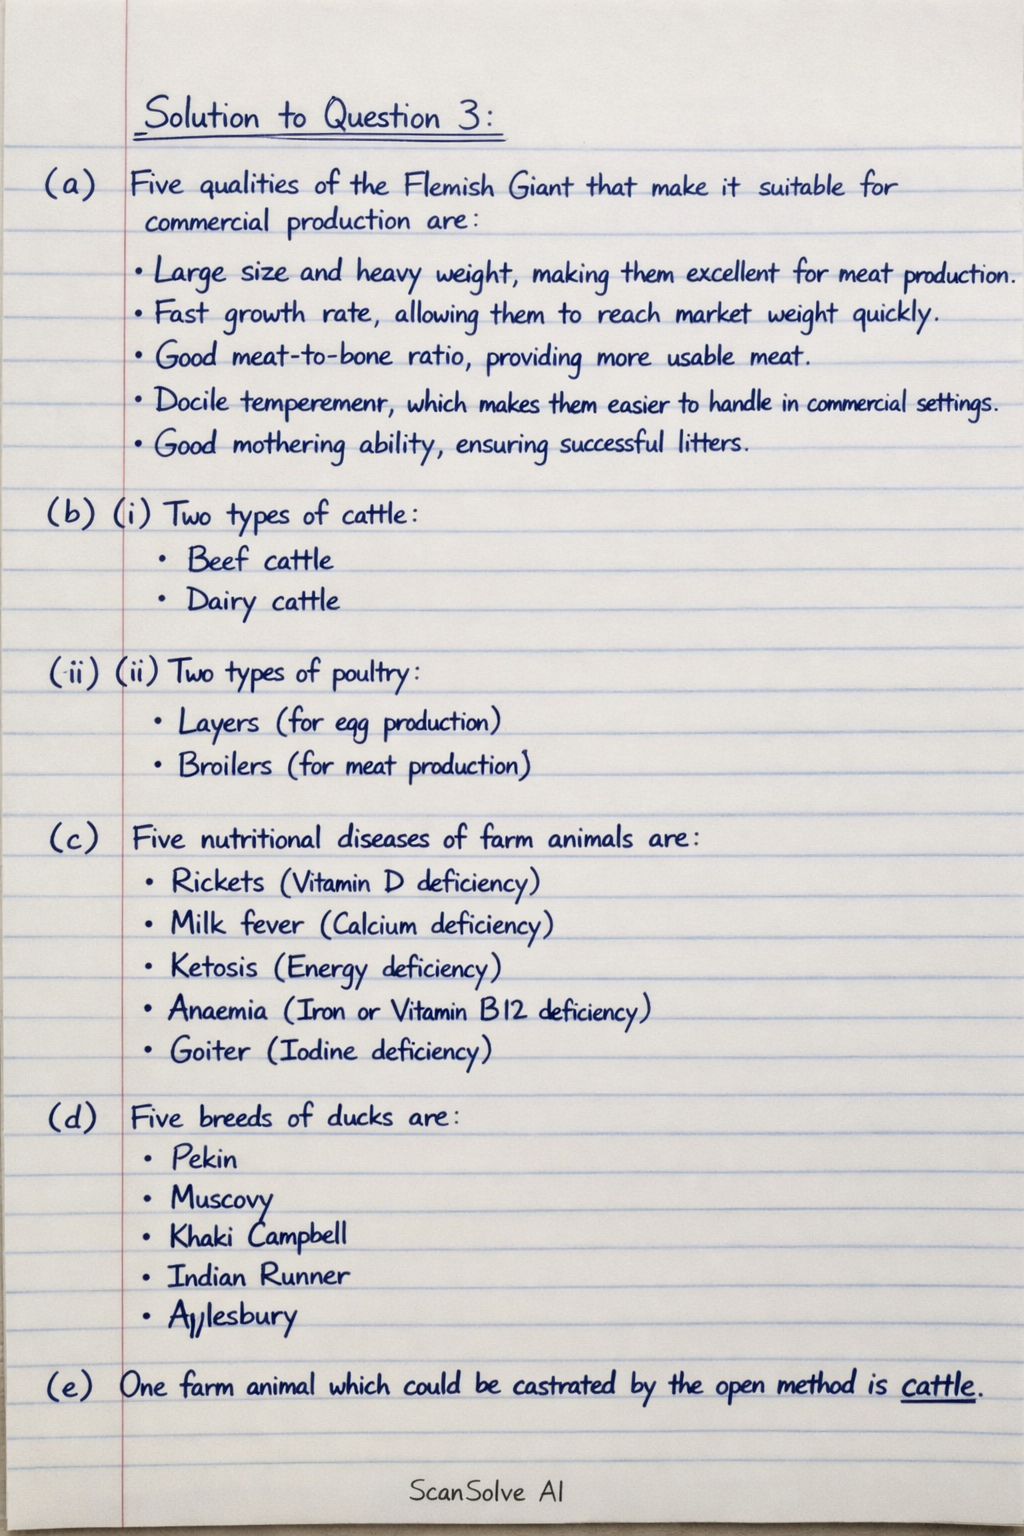 Solution to Question 3:
(a) Five qualities of the Flemish Giant that make it suitable for
commercial production are:
• Large size and heavy weight, making them excellent for meat production.
• Fast growth rate, allowing them to reach market weight quickly.
• Good meat-to-bone ratio, providing more usable meat.
• Docile temperemenr, which makes them easier to handle in commercial settings.
• Good mothering ability, ensuring successful litters.
(b) (i) Two types of cattle:
• Beef cattle
• Dairy cattle
(ii) (ii) Two types of poultry:
• Layers (for egg production)
• Broilers (for meat production)
(c) Five nutritional diseases of farm animals are:
• Rickets (Vitamin D deficiency)
• Milk fever (Calcium deficiency)
• Ketosis (Energy deficiency)
• Anaemia (Iron or Vitamin B12 deficiency)
• Goiter (Iodine deficiency)
(d) Five breeds of ducks are:
• Pekin
• Muscovy
• Khaki Campbell
• Indian Runner
• Aylesbury
(e) One farm animal which could be castrated by the open method is cattle.
ScanSolve AI